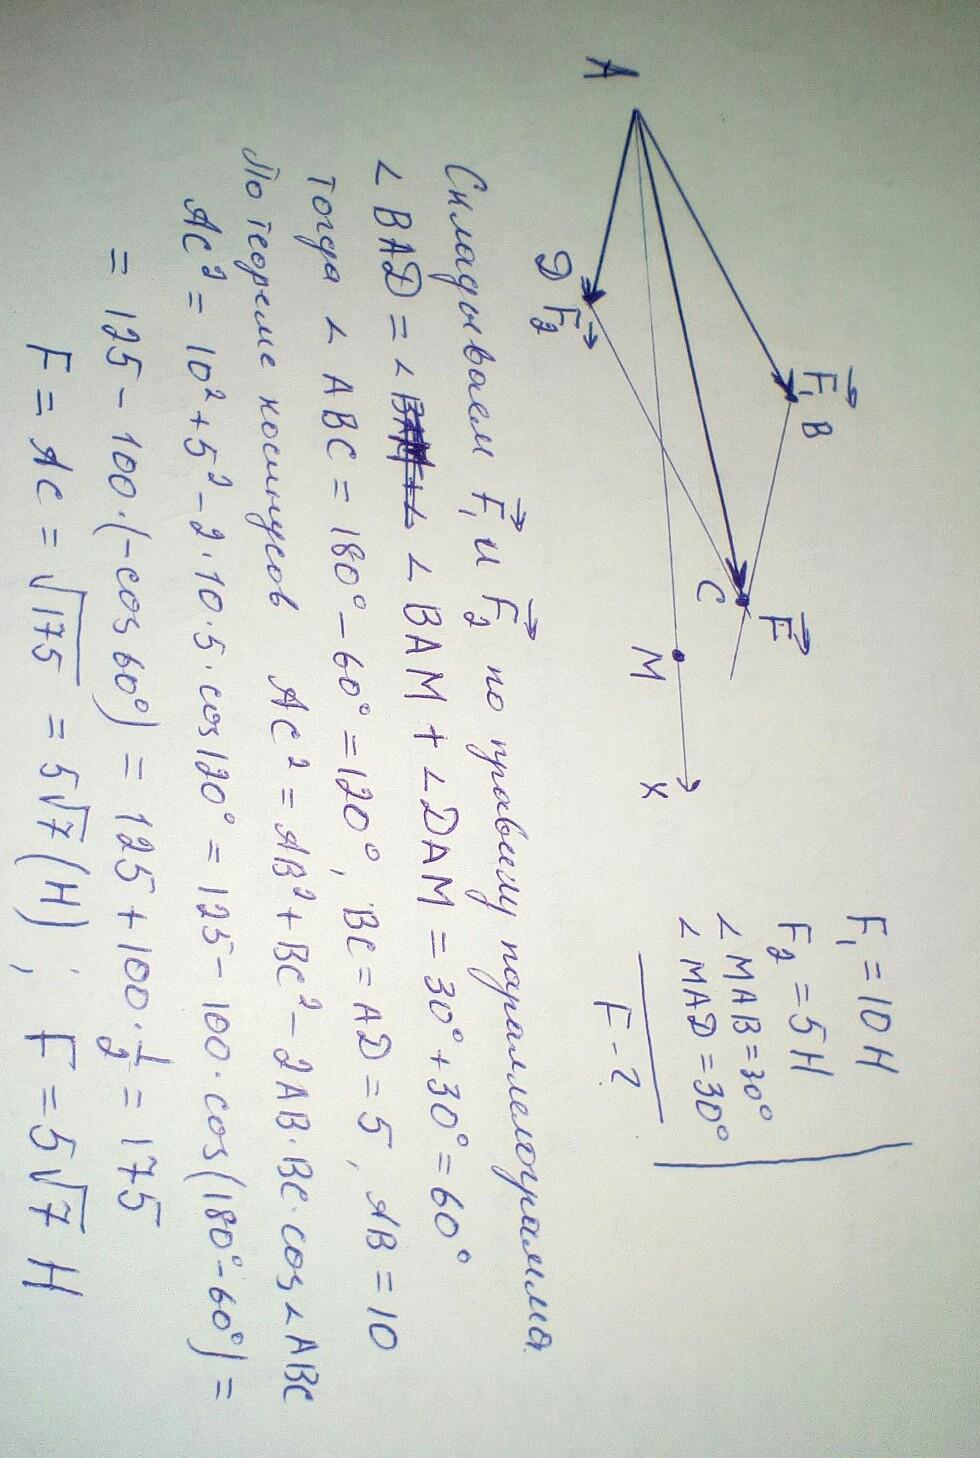 A
F₁ B
D F₂
C
F
M
X
F₁ = 10 Н
F₂ = 5 Н
∠ MAB = 30°
∠ MAD = 30°
F - ?
Складываем F₁ и F₂ по правилу параллелограмма.
∠ BAD = ∠ BAM + ∠ DAM = 30° + 30° = 60°
Тогда ∠ ABC = 180° - 60° = 120°, BC = AD = 5, AB = 10
По теореме косинусов AC² = AB² + BC² - 2AB·BC·cos∠ABC
AC² = 10² + 5² - 2·10·5·cos120° = 125 - 100·cos(180° - 60°) =
= 125 - 100·(-cos60°) = 125 + 100·1/2 = 175
F = AC = √175 = 5√7 (Н); F = 5√7 Н